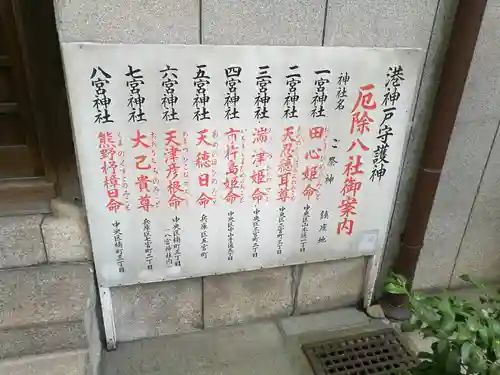 港神戸守護神
厄除八社御案内
神社名 ご祭神 鎮座地
一宮神社 田心姫命 中央区山本通一丁目
二宮神社 天忍穂耳尊 中央区二宮町三丁目
三宮神社 湍津姫命 中央区三宮町二丁目
四宮神社 市杵島姫命 中央区中山手通五丁目
五宮神社 天穂日命 兵庫区五宮町
六宮神社 天津彦根命 中央区楠町三丁目
八宮神社内
七宮神社 大己貴尊 兵庫区七宮町二丁目
八宮神社 熊野杼樟日命 中央区楠町三丁目